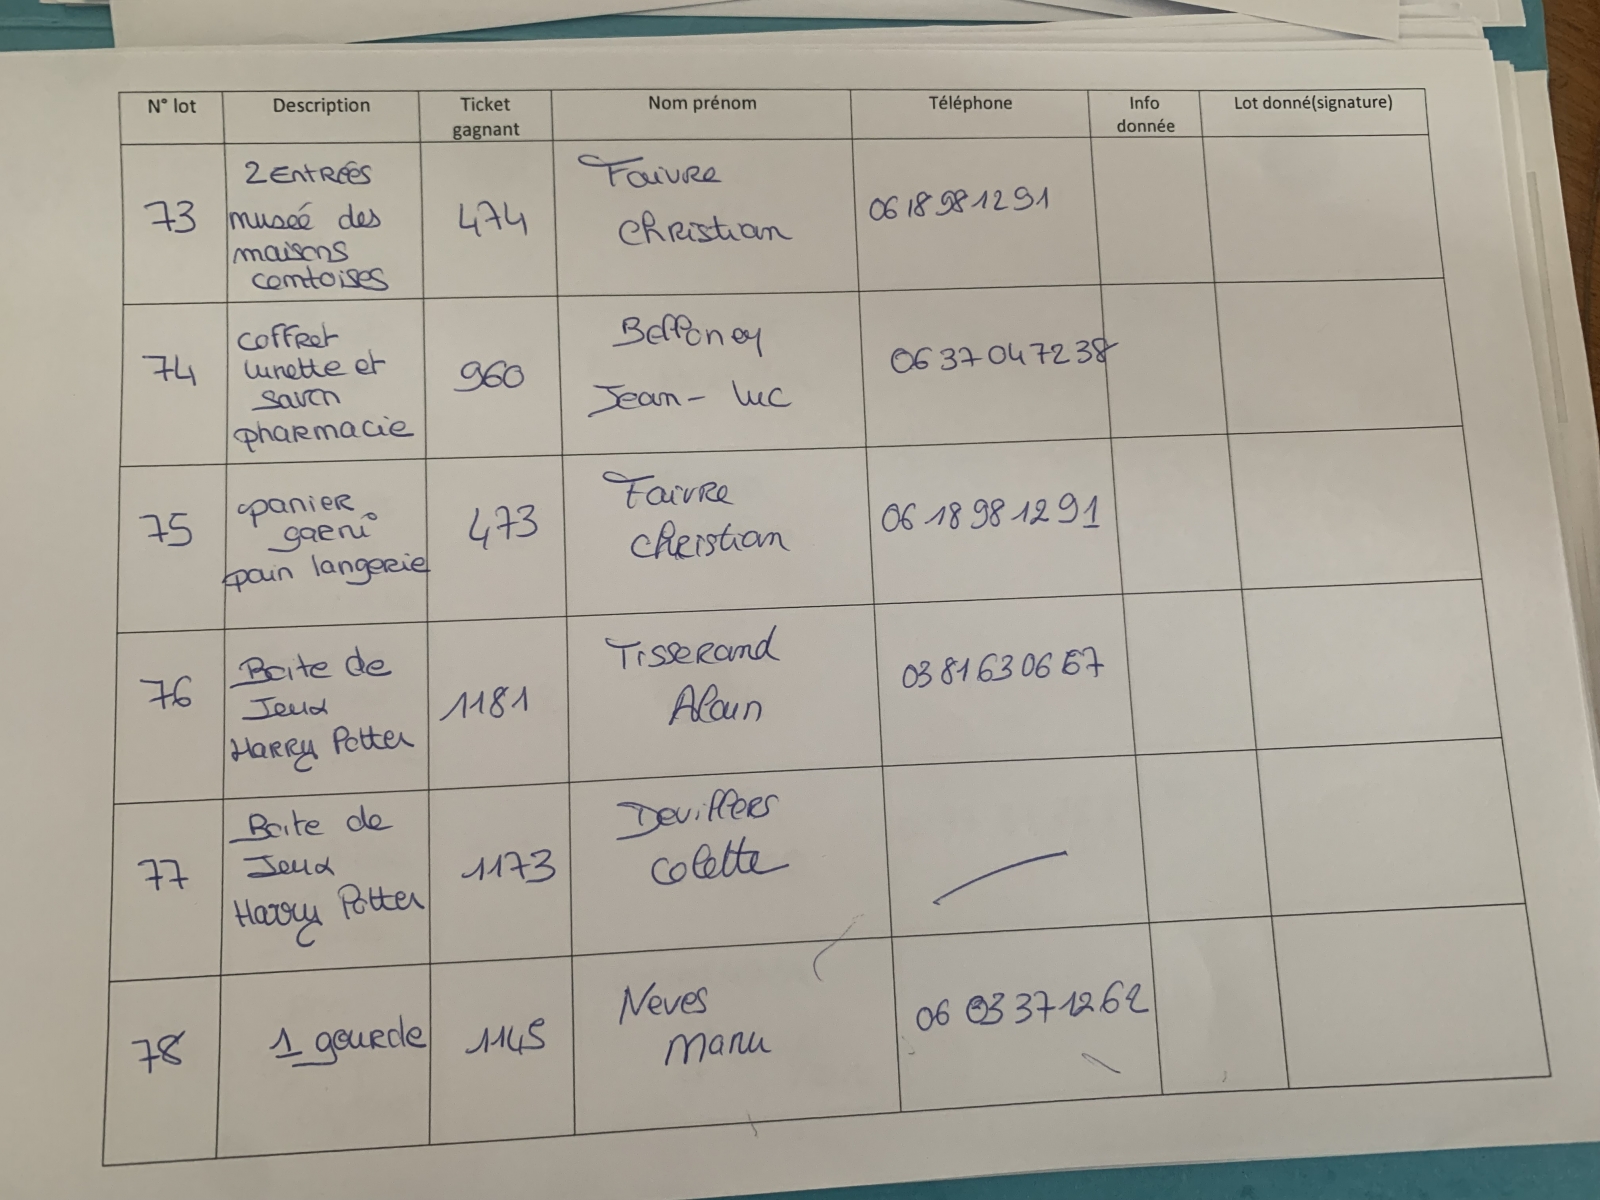 N° lot Description Ticket gagnant Nom prénom Téléphone Info donnée Lot donné(signature)
73
2 Entrées
musée des
maisons
comtoises
474
Faivre
Christian
06 18 98 12 91
74
Coffret
lunette et
savon
pharmacie
960
Jean-luc
06 37 04 72 38
75
panier
garni
pain langerie
473
Faivre
Christian
06 18 98 12 91
76
Boite de
Jeux
Harry Potter
1181
Tisserand
Alain
03 81 63 06 67
77
Boite de
Jeux
Harry Potter
1173
Devillers
Colette
78
1 gourde
1145
Neves
Manu
06 03 37 12 62